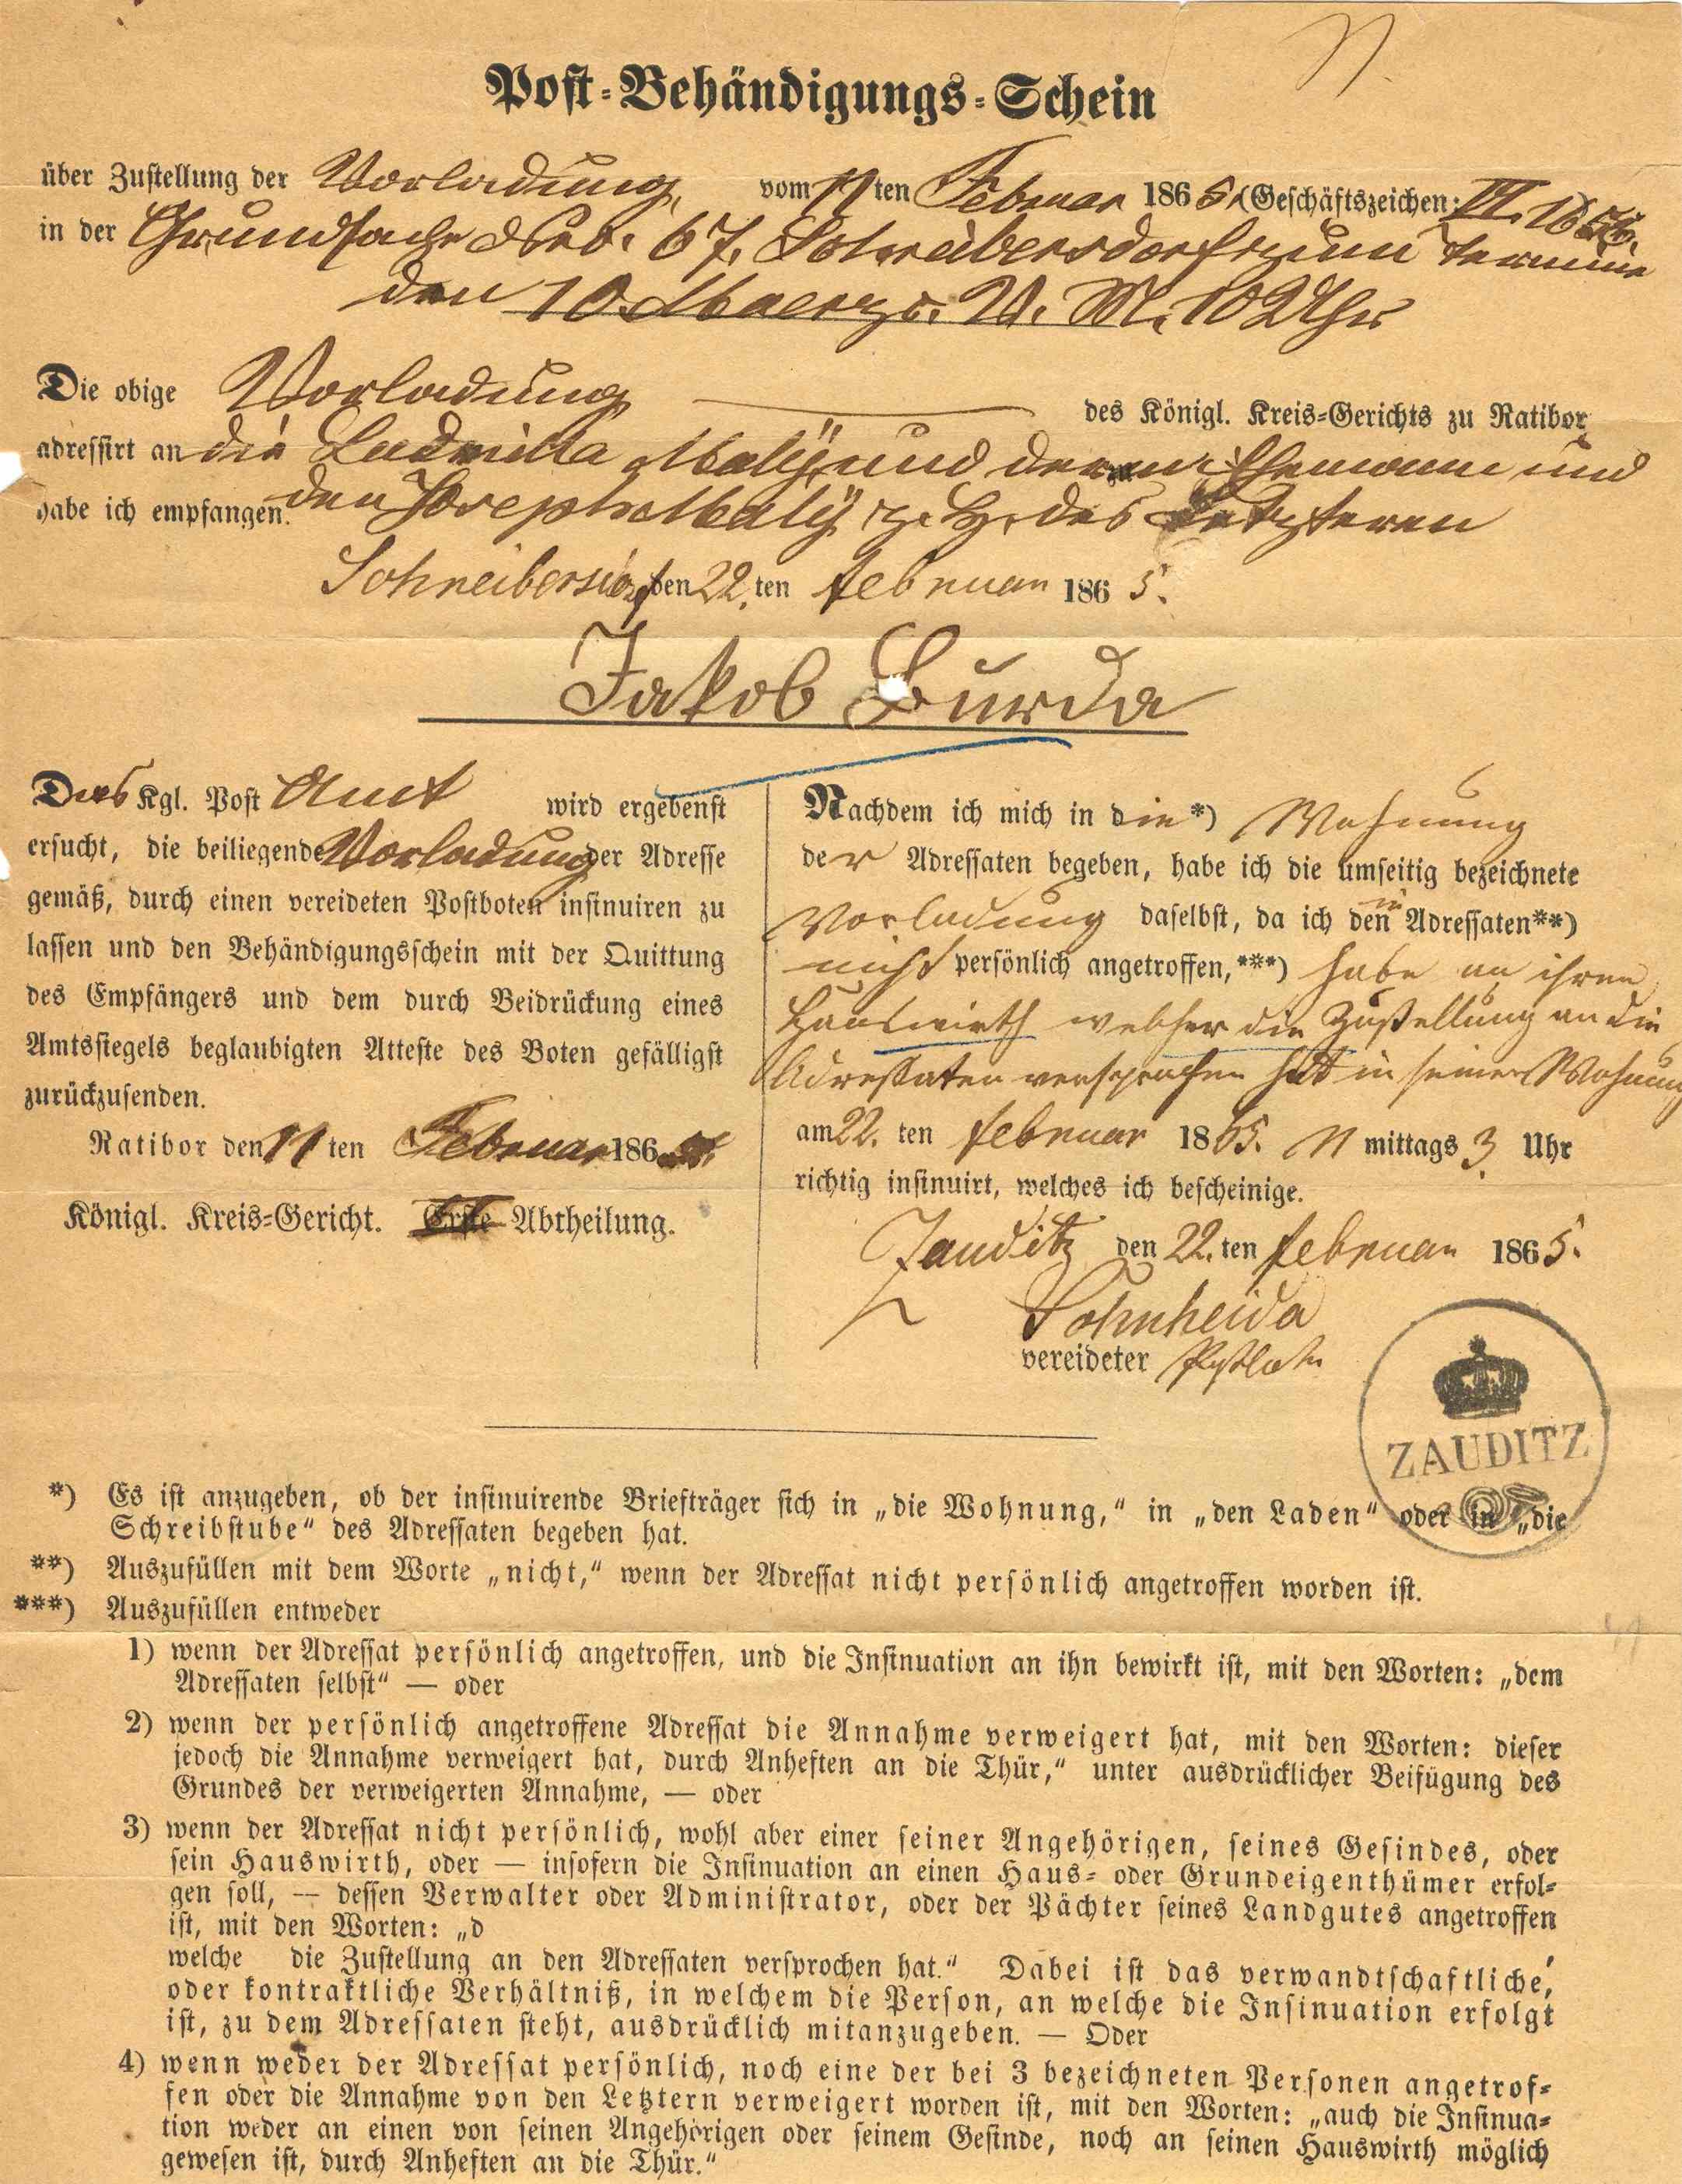 Post-Behändigungs-Schein
über Zustellung der Vorladung vom 11ten Februar 1865 (Geschäftszeichen: II.
in der Grundsache No. 67. Schreibersdorf zum Termine
den 10. Maerz c. V. M. 10 Uhr
Die obige Vorladung des Königl. Kreis-Gerichts zu Ratibor
adressirt an die Ludmilla Maly und deren Ehemann und
habe ich empfangen. den Joseph Maly z. H. des Letzteren
Schreibersdorf den 22.ten Februar 1865.
Jakob Burda
Das Kgl. Post Amt wird ergebenst
ersucht, die beiliegende Vorladung der Adresse
gemäß, durch einen vereideten Postboten insinuiren zu
lassen und den Behändigungsschein mit der Quittung
des Empfängers und dem durch Beidrückung eines
Amtssiegels beglaubigten Atteste des Boten gefälligst
zurückzusenden.
Ratibor den 11ten Februar 1865.
Königl. Kreis-Gericht. Erste Abtheilung.
Nachdem ich mich in die*) Wohnung
der Adressaten begeben, habe ich die umseitig bezeichnete
Vorladung daselbst, da ich den Adressaten**)
nicht persönlich angetroffen,***) habe an ihren
Hauswirth welcher die Zustellung an die
Adressaten versprochen hat in seiner Wohnung
am 22. ten Februar 1865. N mittags 3 Uhr
richtig insinuirt, welches ich bescheinige.
Zauditz den 22.ten Februar 1865.
Schnheida
vereideter Postbote
ZAUDITZ
*) Es ist anzugeben, ob der insinuirende Briefträger sich in „die Wohnung,“ in „den Laden“ oder in „die
Schreibstube“ des Adressaten begeben hat.
**) Auszufüllen mit dem Worte „nicht,“ wenn der Adressat nicht persönlich angetroffen worden ist.
***) Auszufüllen entweder
1) wenn der Adressat persönlich angetroffen, und die Insinuation an ihn bewirkt ist, mit den Worten: „dem
Adressaten selbst“ — oder
2) wenn der persönlich angetroffene Adressat die Annahme verweigert hat, mit den Worten: dieser
jedoch die Annahme verweigert hat, durch Anheften an die Thür,“ unter ausdrücklicher Beifügung des
Grundes der verweigerten Annahme, — oder
3) wenn der Adressat nicht persönlich, wohl aber einer seiner Angehörigen, seines Gesindes, oder
sein Hauswirth, oder — insofern die Insinuation an einen Haus- oder Grundeigenthümer erfol-
gen soll, — dessen Verwalter oder Administrator, oder der Pächter seines Landgutes angetroffen
ist, mit den Worten: „d
welche die Zustellung an den Adressaten versprochen hat.“ Dabei ist das verwandtschaftliche,
oder kontraktliche Verhältniß, in welchem die Person, an welche die Insinuation erfolgt
ist, zu dem Adressaten steht, ausdrücklich mitanzugeben. — Oder
4) wenn weder der Adressat persönlich, noch eine der bei 3 bezeichneten Personen angetrof-
fen oder die Annahme von den Letztern verweigert worden ist, mit den Worten: „auch die Insinua-
tion weder an einen von seinen Angehörigen oder seinem Gesinde, noch an seinen Hauswirth möglich
gewesen ist, durch Anheften an die Thür.“